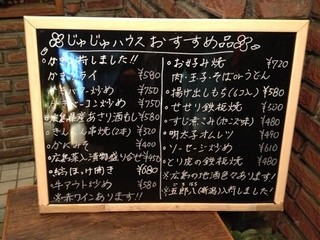 じゅじゅハウスおすすめ品
かき入荷しました!!
かきフライ ¥580
バター炒め ¥750
ベーコン炒め ¥750
広島県産あさり酒むし ¥580
ぎんなん串焼(2本) ¥300
かにみそ ¥400
広島菜入漬物盛り合せ ¥450
縞ほっけ開き ¥680
牛アウト炒め ¥580
※赤ワインあります!!
お好み焼 ¥720
肉・玉子・そばorうどん
揚げ出しもち(6コ入) ¥580
せせり鉄板焼 ¥500
すじ煮こみ(セコンス味) ¥480
明太子オムレツ ¥490
ソーセージ炒め ¥610
とり皮の鉄板焼 ¥480
※広島の地酒色々あります。
※五郎八(新潟)入荷しました!